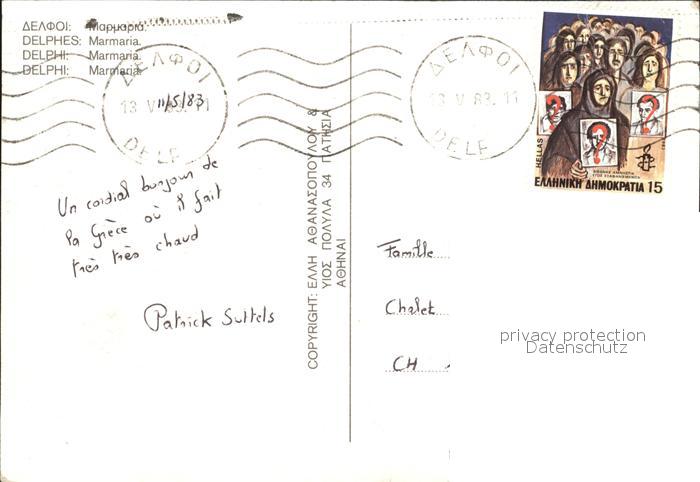 ΔΕΛΦΟΙ: Μαρμαριά.
DELPHES: Marmaria.
DELPHI: Marmaria.
DELPHI: Marmaria.
ΔΕΛΦΟΙ
13 V 83. 11
DELF
11/5/83
Un cordial bonjour de
la Grèce où il fait
très très chaud
Patrick Suttels
COPYRIGHT: ΕΛΛΗ ΑΘΑΝΑΣΟΠΟΥΛΟΥ &
ΥΙΟΣ ΠΟΛΥΛΑ 34 ΠΑΤΗΣΙΑ
ΑΘΗΝΑΙ
ΔΕΛΦΟΙ
13 V 83. 11
DELF
HELLAS
ΔΙΕΘΝΗΣ ΑΜΝΗΣΤΙΑ
ΕΛΛΗΝΙΚΗ ΔΗΜΟΚΡΑΤΙΑ 15
Famille
Chalet
CH
privacy protection
Datenschutz